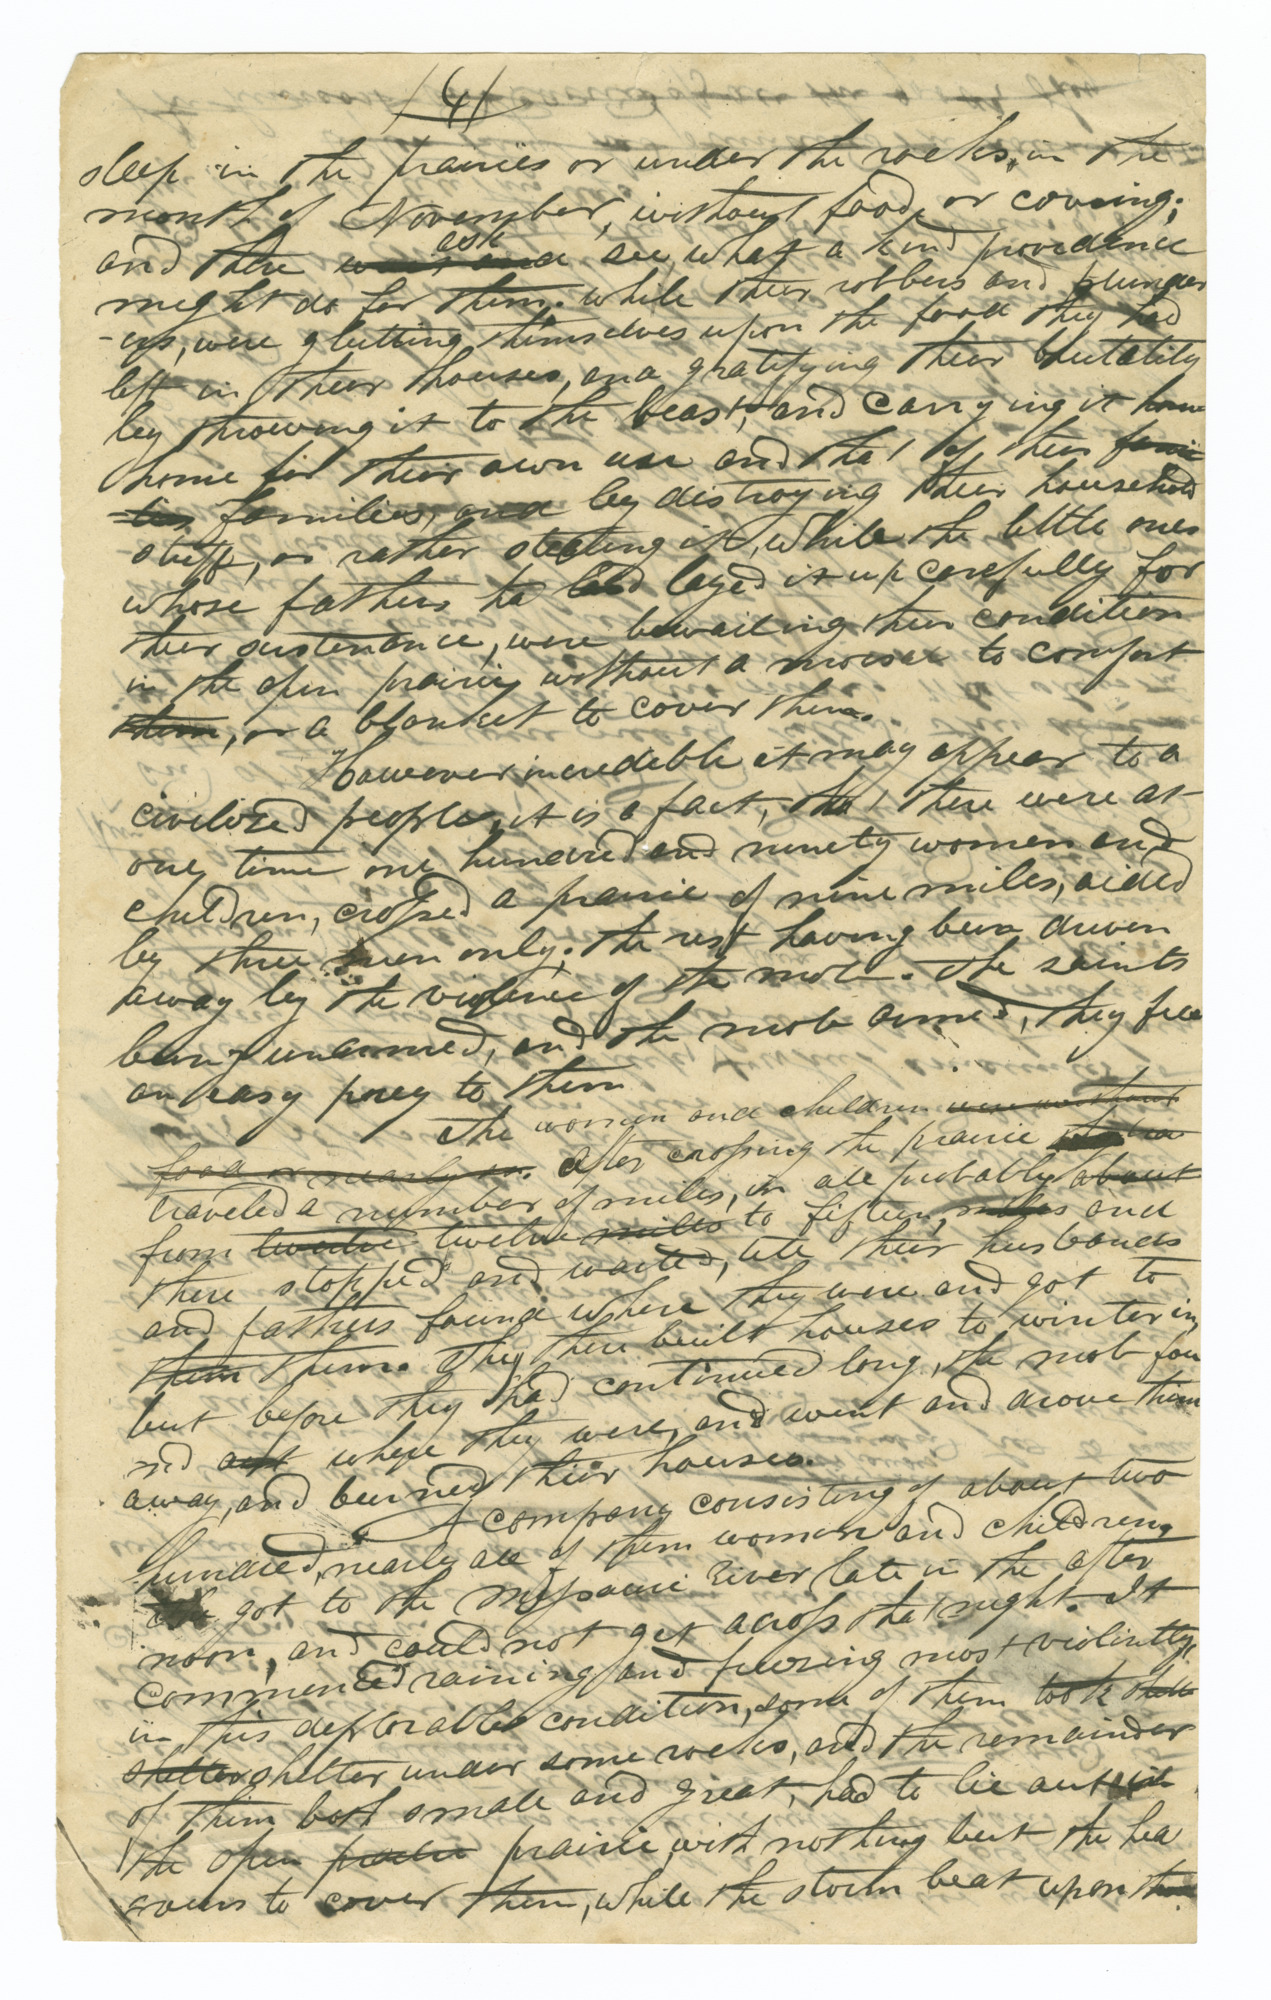 (4)
sleep in the prairies or under the rocks, in the
month of November, without food, or covering;
and there ask see, what a kind providence
might do for them. while their robbers and plunder
-ers, were glutting themselves upon the food they had
left in their houses, and gratifying their brutality
by throwing it to the beast, and carrying it home
home for their own use and that of their fami
lies families, and by distroying their household
stuff, or rather stealing it, while the little ones
whose fathers ha had layed it up carefully for
their sustenance, were bewailing their condition
in the open prairie without a morsal to comfort
them, or a blanket to cover them.
However incredible it may appear to a
civilized people, it is a fact, that there were at
one time one hundred and ninety women and
children, crossed a prairie of nine miles, aided
by three men only; the rest having been driven
away by the violence of the mob. The saints
being unarmed, and the mob armed, they fell
an easy prey to them
The women and children were without
food or nearly so. after crossing the prairie
traveled a number of miles, in all probably about
from twelve twelve miles to fifteen, miles and
there stopped and waited, till their husbands
and fathers found where they were and got to
them them. They there built houses to winter in,
but before they had continued long, the mob fou
nd out where they were, and went and drove them
away, and burned their houses.
A company consisting of about two
hundred, nearly all of them women and children,
got to the Missouri River late in the after
noon, and could not get across that night. It
commenced raining and pouring most violintly,
in this deplorable condition, some of them took shelt
shelter shelter under some rocks, and the remainder
of them both small and great, had to lie out in
the open prairie prairie, with nothing but the hea
avens to cover them, while the storm beat upon them